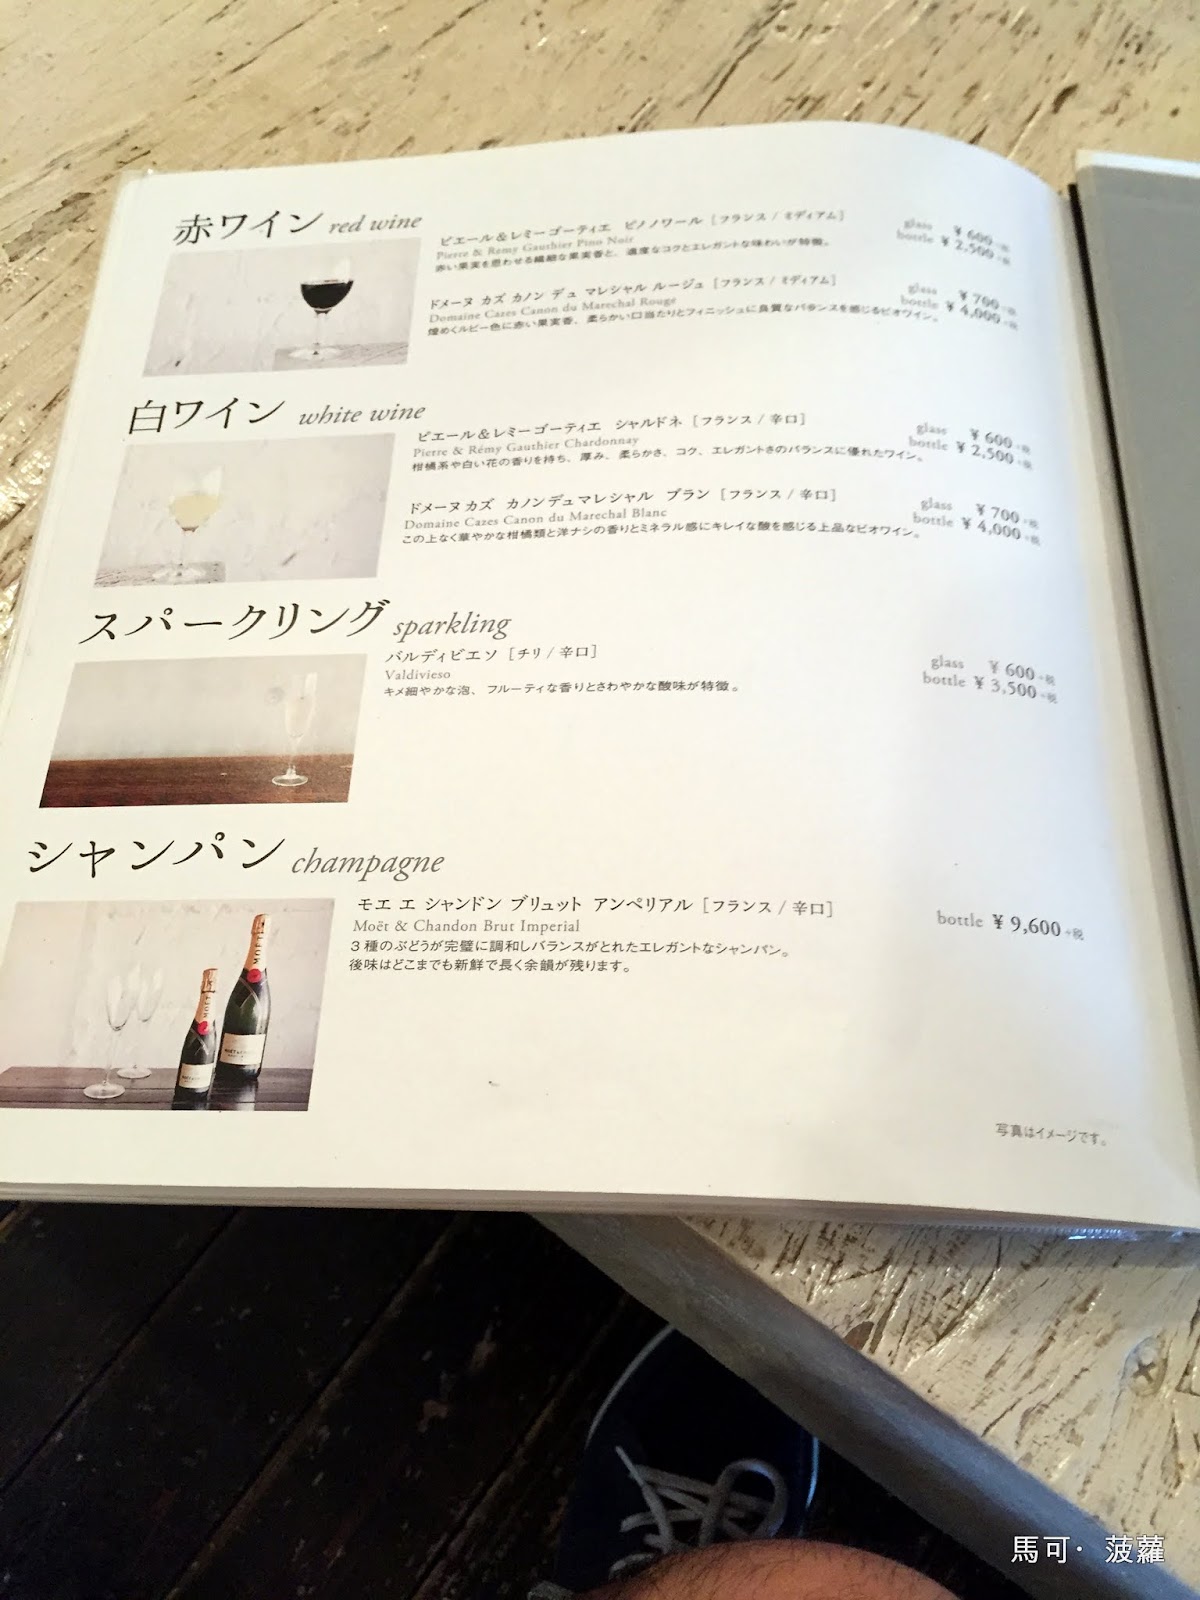 赤ワイン red wine
ピエール＆レミーゴーティエ ピノノワール［フランス / ミディアム］
Pierre & Remy Gauthier Pino Noir
赤い果実を思わせる繊細な果実香と、適度なコクとエレガントな味わいが特徴。
glass ¥ 600+税
bottle ¥ 2,500+税
ドメーヌ カズ カノン デュ マレシャル ルージュ［フランス / ミディアム］
Domaine Cazes Canon du Marechal Rouge
煌めくルビー色に赤い果実香、柔らかい口当たりとフィニッシュに良質なバランスを感じるビオワイン。
glass ¥ 700+税
bottle ¥ 4,000+税
白ワイン white wine
ピエール＆レミーゴーティエ シャルドネ［フランス / 辛口］
Pierre & Rémy Gauthier Chardonnay
柑橘系や白い花の香りを持ち、厚み、柔らかさ、コク、エレガントさのバランスに優れたワイン。
glass ¥ 600+税
bottle ¥ 2,500+税
ドメーヌカズ カノンデュマレシャル ブラン［フランス / 辛口］
Domaine Cazes Canon du Marechal Blanc
この上なく華やかな柑橘類と洋ナシの香りとミネラル感にキレイな酸を感じる上品なビオワイン。
glass ¥ 700+税
bottle ¥ 4,000+税
スパークリング sparkling
バルディビエソ［チリ / 辛口］
Valdivieso
キメ細やかな泡、フルーティな香りとさわやかな酸味が特徴。
glass ¥ 600+税
bottle ¥ 3,500+税
シャンパン champagne
モエ エ シャンドン ブリュット アンペリアル［フランス / 辛口］
Moët & Chandon Brut Imperial
3種のぶどうが完璧に調和しバランスがとれたエレガントなシャンパン。
後味はどこまでも新鮮で長く余韻が残ります。
bottle ¥ 9,600+税
写真はイメージです。
馬可·菠蘿